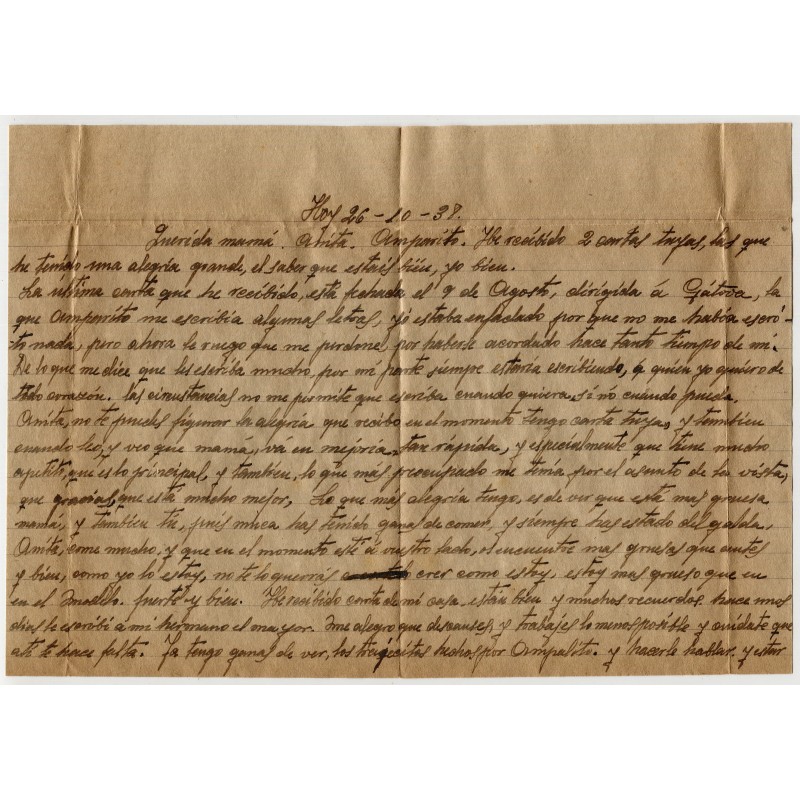 Hoy 26-10-38.
Querida mamá. Anita. Amparito. He recibido 2 cartas tuyas, las que
he tenido una alegría grande, el saber que estáis bien, yo bien.
La última carta que he recibido, está fechada el 9 de Agosto, dirigida á Gátova, la
que Amparito me escribía algunas letras, yo estaba enfadado por que no me había escri-
to nada, pero ahora le ruego que me perdone por haberse acordado hace tanto tiempo de mí.
De lo que me dice que les escriba mucho, por mi parte siempre estaría escribiendo, á quien yo quiero de
todo corazón. las circustancias no me permite que escriba cuando quiera, sí nó cuando pueda.
Anita, no te puedes figurar la alegría que recibo en el momento tengo carta tuya, y tambien
cuando leo, y veo que mamá, vá en mejoría, tan rápida, y especialmente que tiene mucho
apetito, que es lo principal, y tambien, lo que más preocupado me tenía por el asunto de la vista,
que gracias, que está mucho mejor, Lo que más alegría tengo, es de ver que está mas gruesa
mamá, y tambien tú, puis nunca has tenido ganas de comer, y siempre has estado delgada,
Anita, come mucho, y que en el momento esté á vuestro lado, os encuentre mas gruesas que antes
y bien, como yo lo estoy, no te lo querrás creer como estoy, estoy mas grueso que en
en el fuerte y bien. He recibido carta de mi casa, están bien y muchos recuerdos, hace unos
dias le escribí á mi hermano el mayor. Me alegro que descanses, y trabajes lo menos posible y cuidate que
ati te hace falta. Ya tengo ganas de ver, los trajecitos hechos por Amparito. y hacerle hablar. y estar